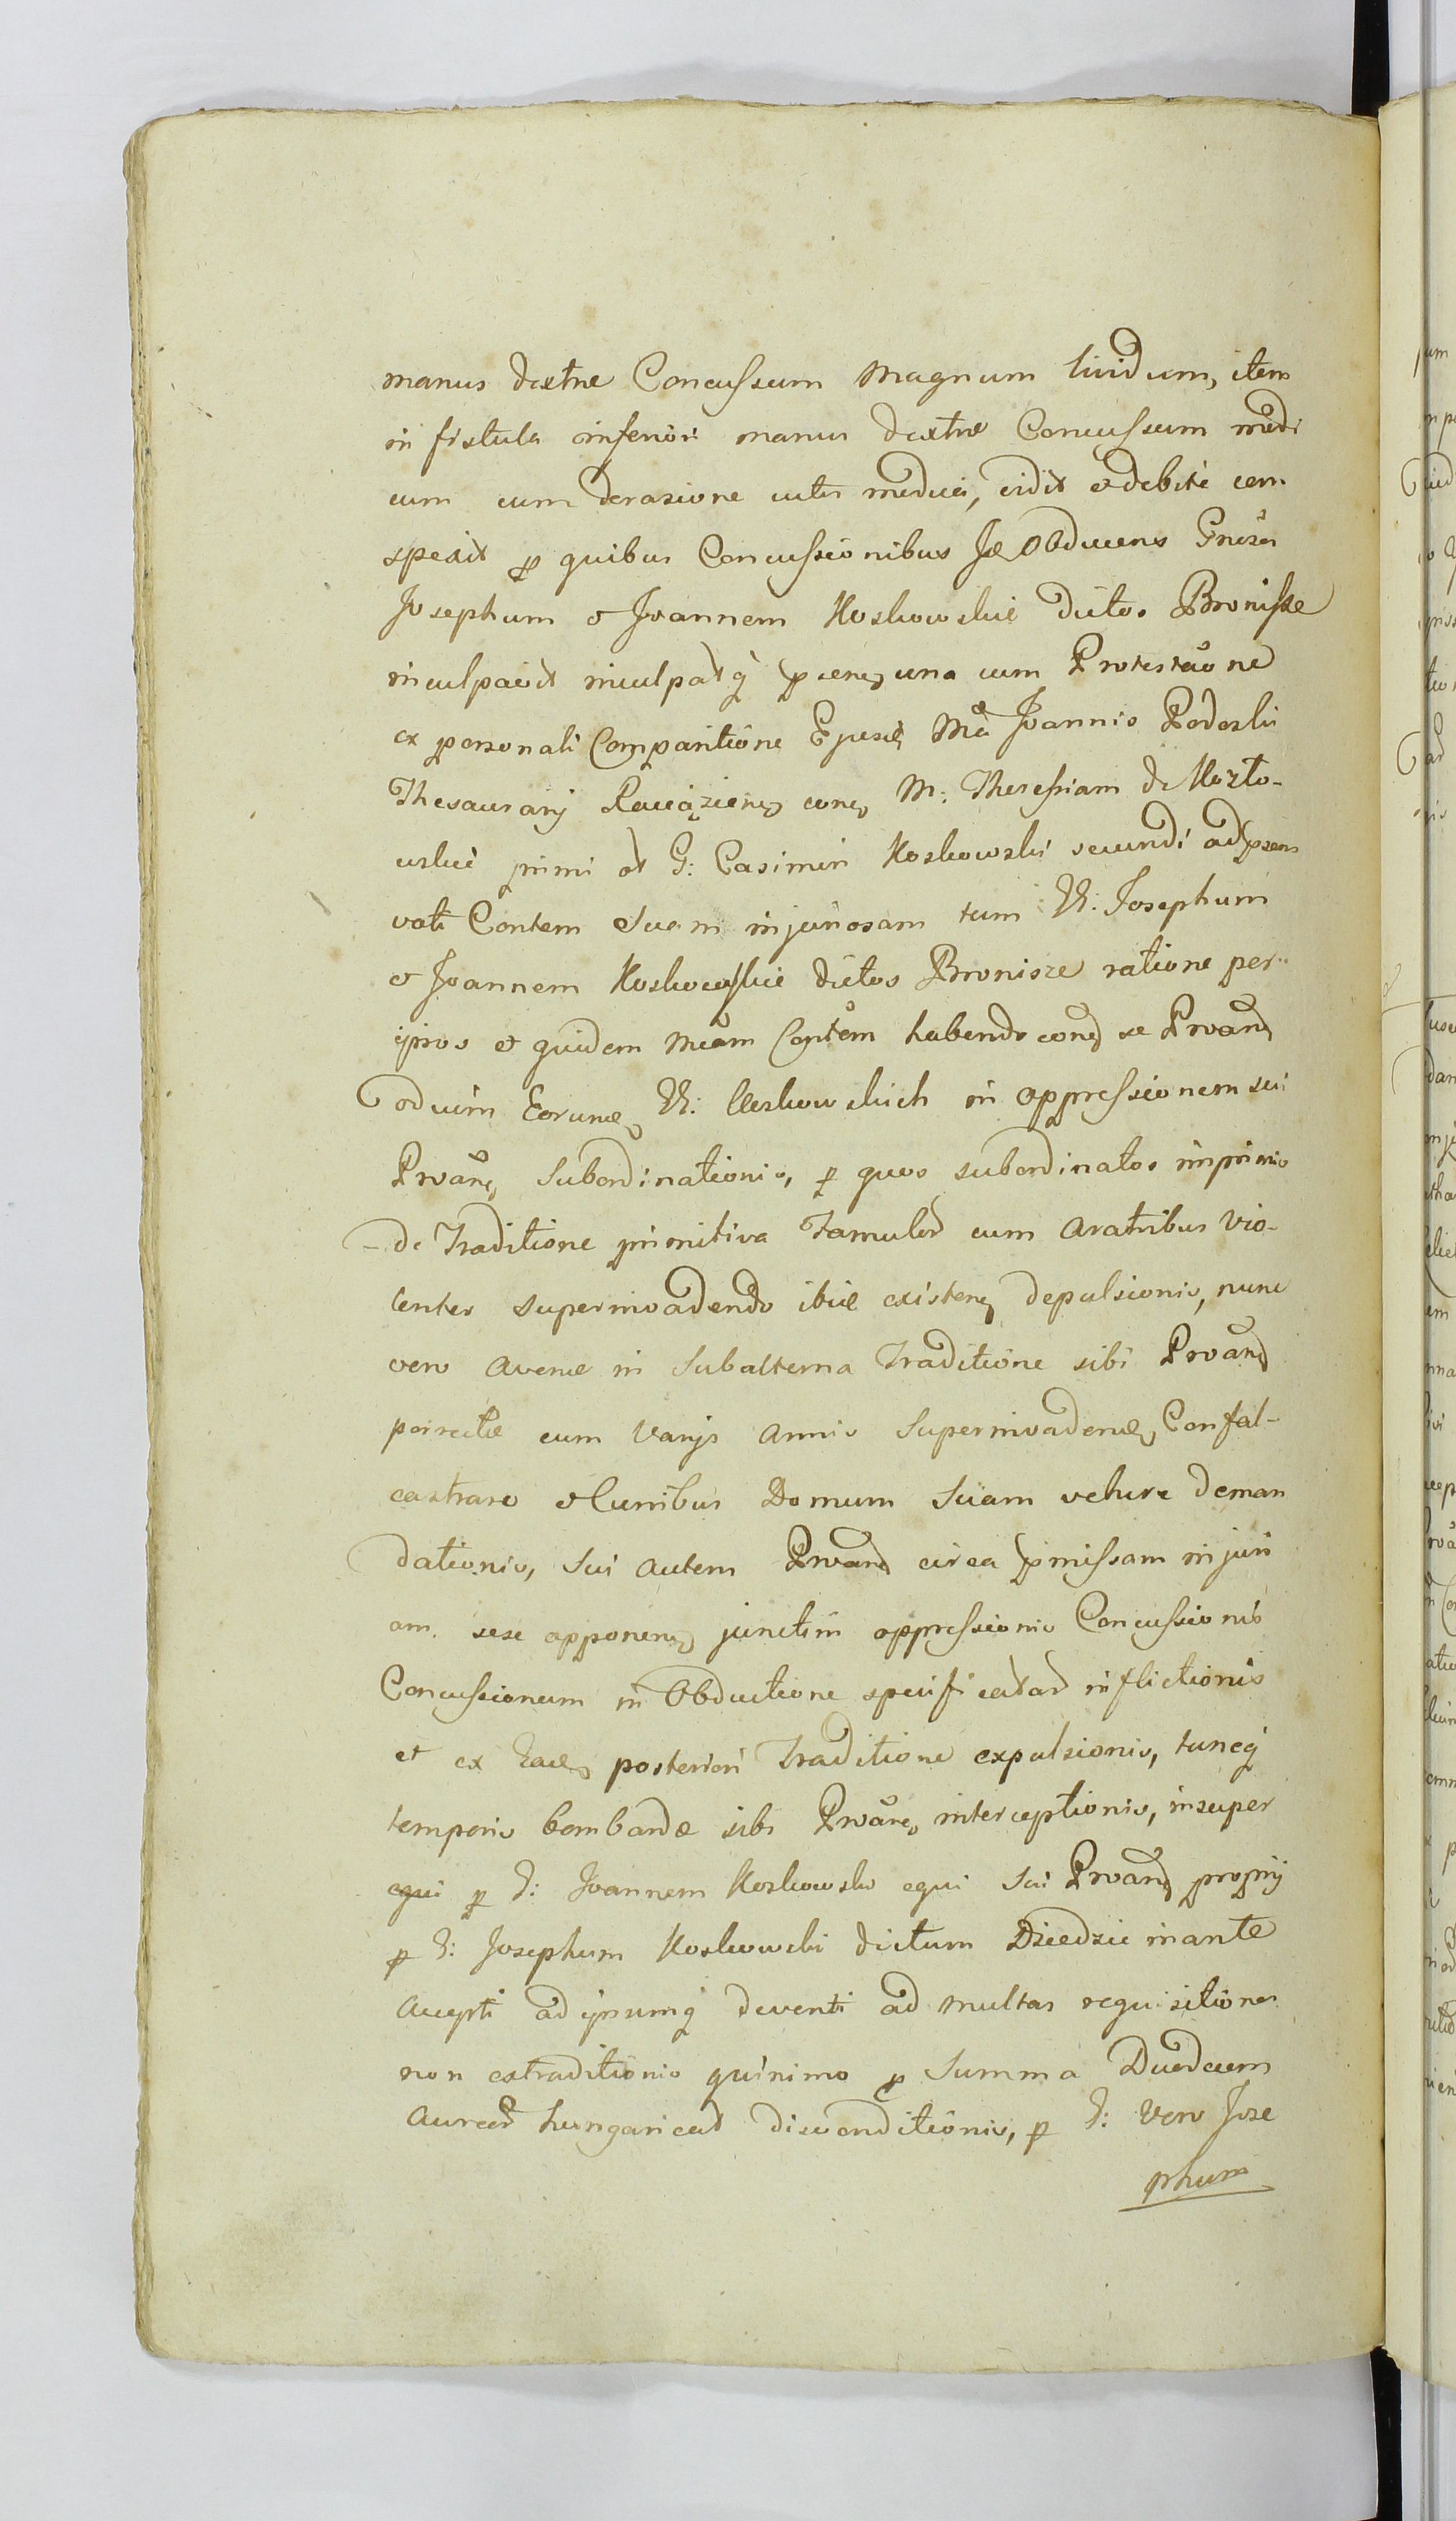 manus dextræ Concussum magnum lividum, item
in fistula inferiori manus dextræ Concussum modi
cum cum derasione cutis modica, vidit et debite con
spexit p quibus Concussionibus se Obducens Gnosos
Josephum et Joannem Koskowskie dictos Bronisze
inculpavit inculpatq una cum Protestaone
ex personali Comparitione Ejusd Mci Joannis Podoski
Thesaurarij Raciązien con M: Theressiam de Kozło-
wskie primi et G: Casimiri Koskowski secundi ad praesens
voti Contem suam injuriosam tum GG: Josephum
et Joannem Koskowskie dictos Bronisze ratione per
ipsos et quidem Mcam Contem habendo con se Proan
odium Eorund GG: Koskowskich in oppressionem sui
Proan Subordinationis, p quos subordinatos imprimis
de Traditione primitiva Famulor cum aratribus vio-
lenter superinvadendo ibid existen depulsionis, nunc
vero avenæ in Subalterna Traditione sibi Proan
porrectæ cum varijs armis Superinvadend, Confal-
castrare et Curribus Domum suam vehere deman
dationis, sui autem Proan circa pmissam injuri
am sese opponen junctim oppressionis Concussionis
Concussionum in Obductione specificatar inflictionis
et ex Ead posteriori Traditione expulsionis, tuncq
temporis bombardæ sibi Proan interceptionis, insuper
equi p G: Joannem Koskowski equi sui Proan proprij
p G: Josephum Koskowski dictum Dziedzic inante
accepti ad ipsumq deventi ad multas requisitiones
non extraditionis quinimo p Summa Duodecem
Aureor hungaricat disvenditionis, p G: vero Jose
phum